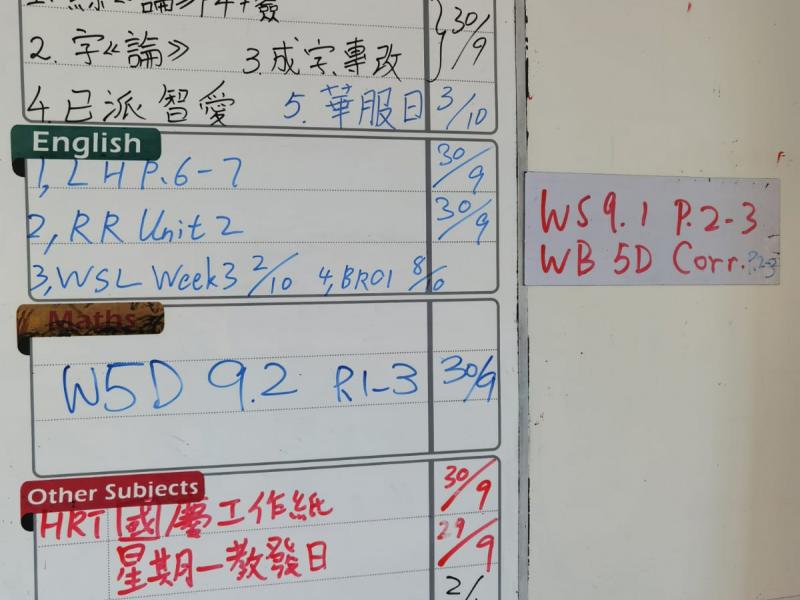 30/9
2. 字《論》 3. 成宗專改
4. 已派智愛 5. 華服日 3/10
English
1, LH P.6-7 30/9
2, RR Unit 2 30/9
3, WSL Week3 2/10 4, BR01 8/10
Maths
W5D 9.2 P.1-3 30/9
Other Subjects
HRT 國慶工作紙 30/9
星期一教發日 29/9
2/
WS 9.1 P.2-3
WB 5D Corr. P.2-3